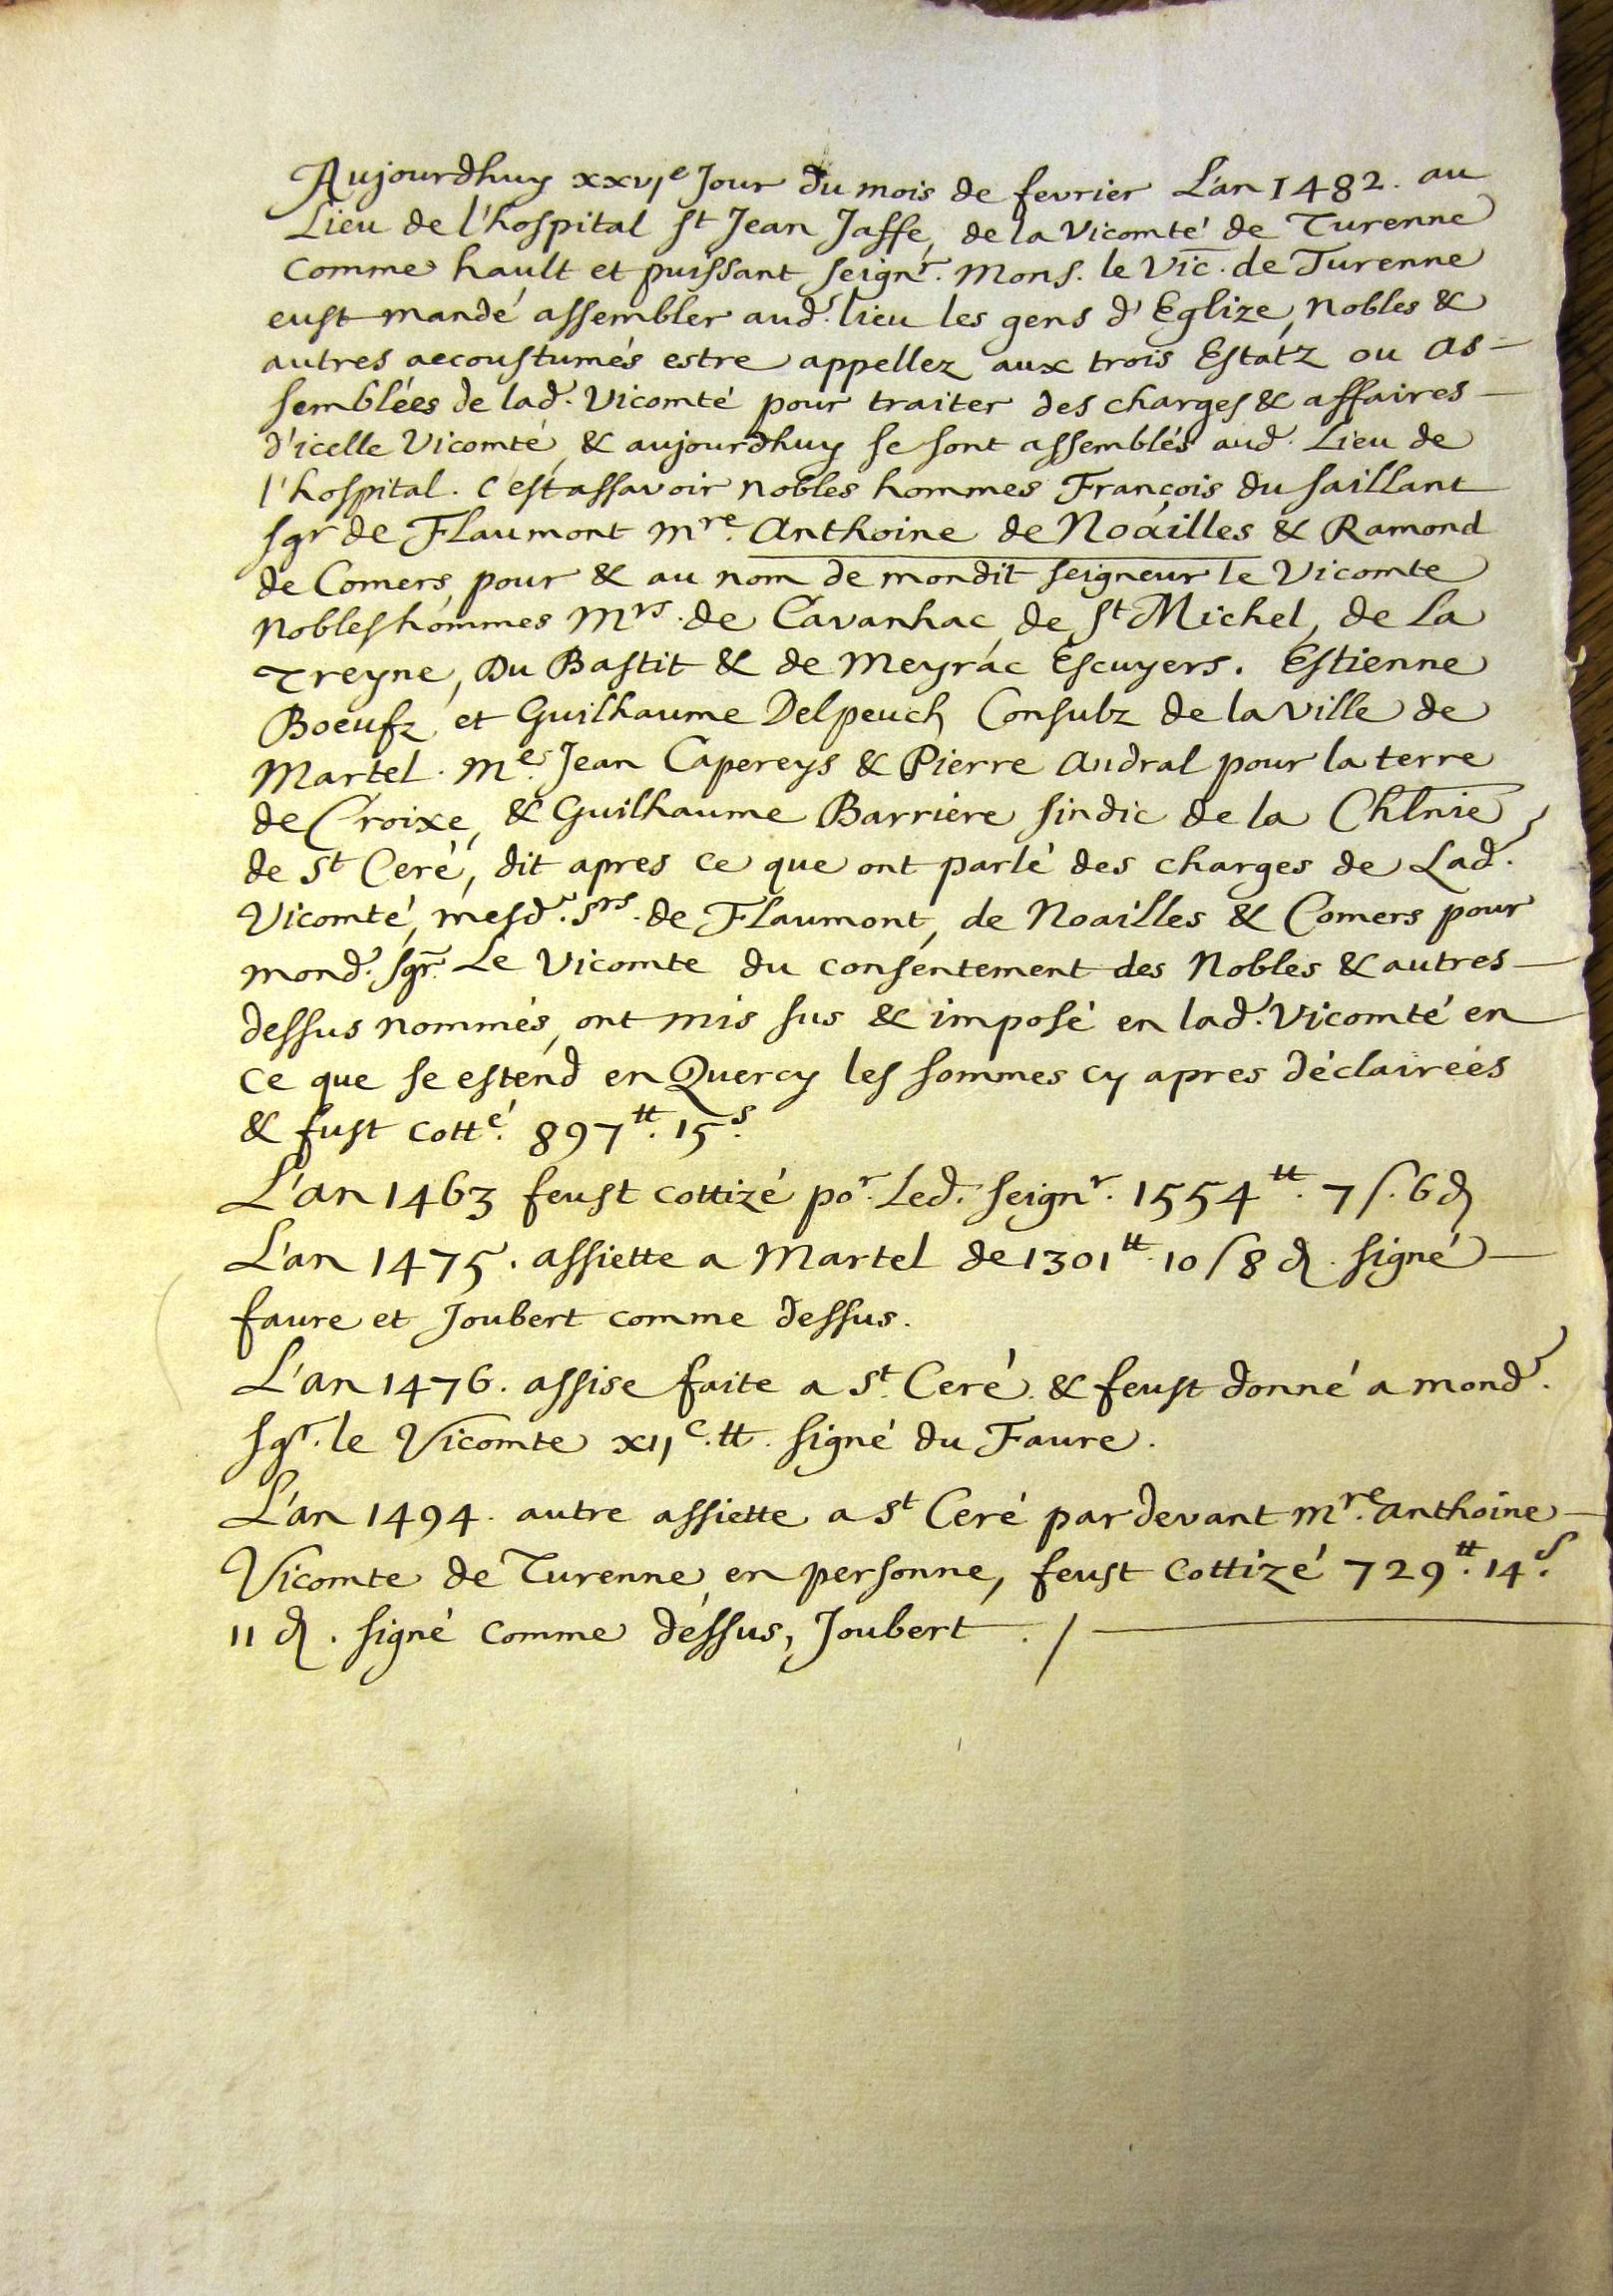 Aujourdhuy xxvıe Jour du mois de fevrier L'an 1482. au
Lieu de l'hospital st Jean Jaffe, de la Vicomté de Turenne
comme hault et puissant seignr. Mons. le Vic. de Turenne
eust mandé assembler aud. lieu les gens d'Eglize, Nobles &
autres accoustumés estre appellez aux trois Estatz ou as-
semblées de lad. Vicomté pour traiter des charges & affaires
d'icelle Vicomté, & aujourdhuy se sont assemblés aud. Lieu de
l'hospital. C'est assavoir nobles hommes François du saillant
sgr de Flaumont mre. Anthoine de Noailles & Ramond
de Comers, pour & au nom de mondit seigneur le Vicomte
nobles hommes Mrs. de Cavanhac, de st Michel, de La
Treyne, Du Bastit & de Meyrac Escuyers. Estienne
Boeufz et Guilhaume Delpeuch Consulz de la ville de
Martel. Me. Jean Capereys & Pierre Audral pour la terre
de Croixe, & Guilhaume Barriere sindic de la Chlnie
de st Ceré, dit apres ce que ont parlé des charges de Lad.
Vicomté, mesd. srs. de Flaumont, de Noailles & Comers pour
mond. sgr. Le Vicomte du consentement des Nobles & autres
dessus nommés, ont mis sus & imposé en lad. Vicomté en
ce que se estend en Quercy les sommes cy apres déclairées
& fust cotté. 897tt. 15s.
L'an 1463 feust cottizé por. Led. seignr. 1554tt. 7 s. 6 d
L'an 1475. assiette a Martel de 1301tt. 10 s 8 d. signé
faure et Joubert comme dessus.
L'an 1476. assise faite a st. Ceré. & feust donné a mond.
sgr. le Vicomte xııc. tt. signé du Faure.
L'an 1494. autre assiette a st Ceré par devant mre. anthoine
Vicomte de Turenne en personne, feust cottizé 729tt. 14s.
11 d. signé comme dessus, Joubert. /